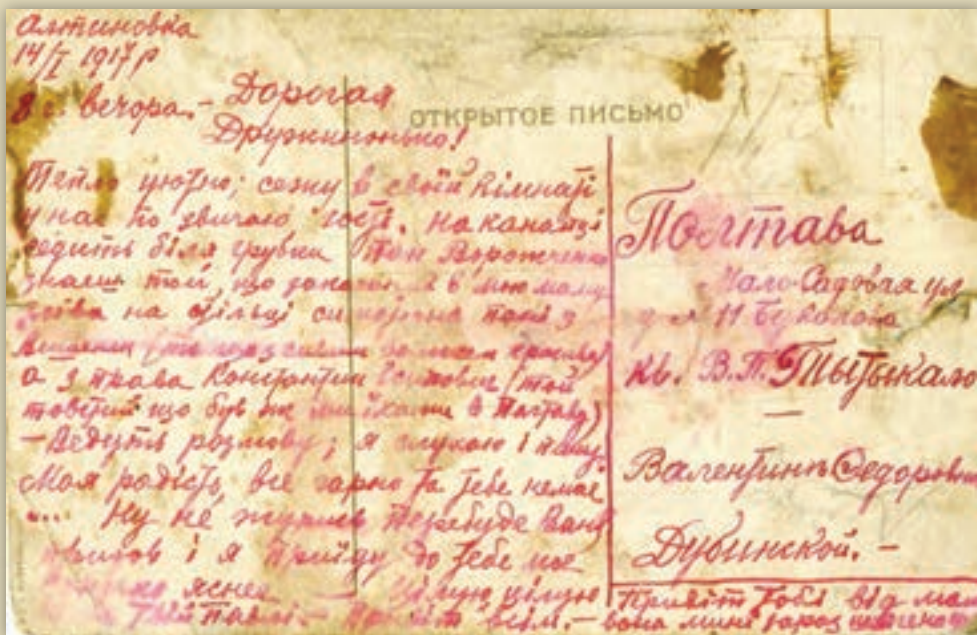 Алтиновка
14/I 1917 р
8 г. вечора. – Дорогая
Дружинонько!
ОТКРЫТОЕ ПИСЬМО
Тепло уютно; сежу в своїй кімнаті
у нас по звичаю гості. На канапці
седить біля грубки Пан Ворожченко
знаєш той, що
на стільці пані з
а з права Константин (той
товстий що був в Полтаву)
– Ведуть розмову; я слухаю і пишу.
Моя радість, все гарно та тебе немає
.... Ну не журись перебуде Ваня
і я приїду до тебе моє
ясне Цілую цілую
Твій Павло. – Привіт всім. –
Полтава
Мало-Садовая ул
д. 11
кв. В.П. Тытыкало
–
Валентинъ Федоровнъ
Дубинской. –
Привіт тобі від мами
вона мині зараз